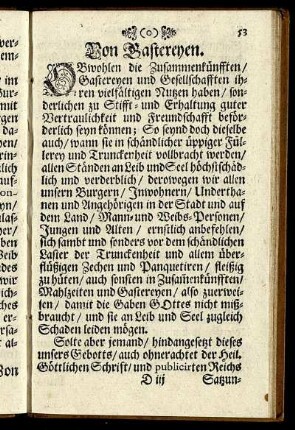 53
Von Gastereyen.
OBwohlen die Zusammenkünfften/
Gastereyen und Gesellschafften ih-
ren vielfältigen Nutzen haben/ son-
derlichen zu Stifft- und Erhaltung guter
Vertraulichkeit und Freundschafft beför-
derlich seyn können; So seynd doch dieselbe
auch/ wann sie in schändlicher üppiger Fül-
lerey und Trunckenheit vollbracht werden/
allen Ständen an Leib und Seel höchstschäd-
lich und verderblich/ derowegen wir allen
unsern Burgern/ Inwohnern/ Undertha-
nen und Angehörigen in der Stadt und auf
dem Land/ Mann- und Weibs-Personen/
Jungen und Alten/ ernstlich anbefehlen/
sich sambt und sonders vor dem schändlichen
Laster der Trunckenheit und allem über-
flüßigen Zechen und Panquetiren/ fleißig
zu hüten/ auch sonsten in Zusam̃enkünfften/
Mahlzeiten und Gastereyen/ also zuerwei-
sen/ damit die Gaben GOttes nicht miß-
braucht/ und sie an Leib und Seel zugleich
Schaden leiden mögen.
Solte aber jemand/ hindangesetzt dieses
unsers Gebotts/ auch ohnerachtet der Heil.
Göttlichen Schrifft/ und publicirten Reichs
D iij
Satzun-